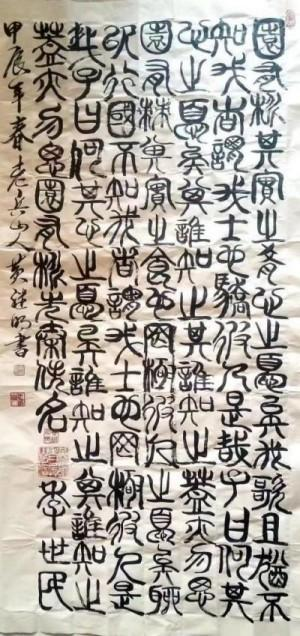 園有桃其實之肴心之憂矣我歌且謠不
知我者謂我士也驕彼人是哉子曰何其
心之憂矣其誰知之其誰知之蓋亦勿思
園有棘其實之食也罔極彼人之憂矣聊
以行國不知我者謂我士也罔極彼人是
哉子曰何其心之憂矣誰知之其誰知之
蓋亦勿思園有桃先秦佚名 李世民
甲辰年春老兵山人黃繼明書